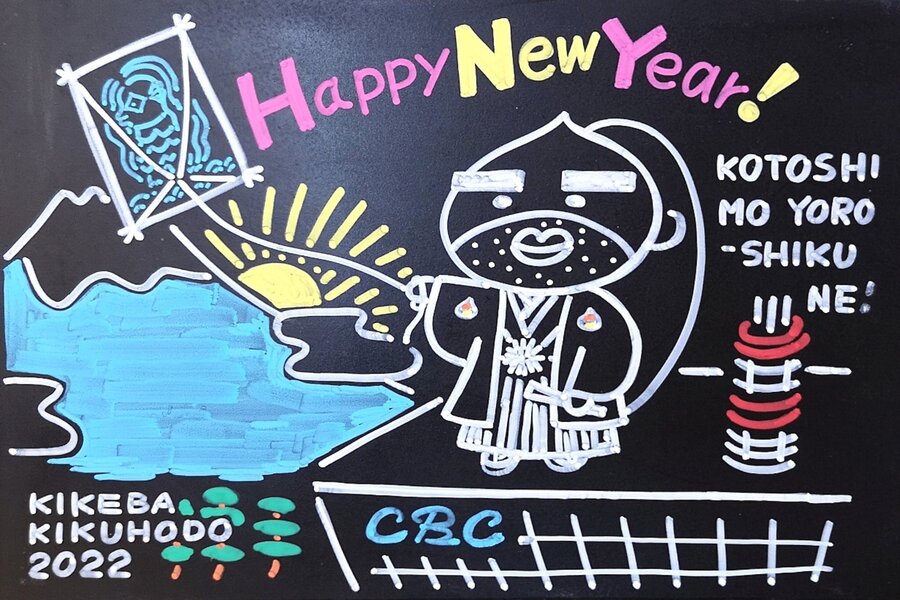 Happy New Year!
KOTOSHI
MO YORO
-SHIKU
NE!
KIKEBA
KIKUHODO
2022
CBC